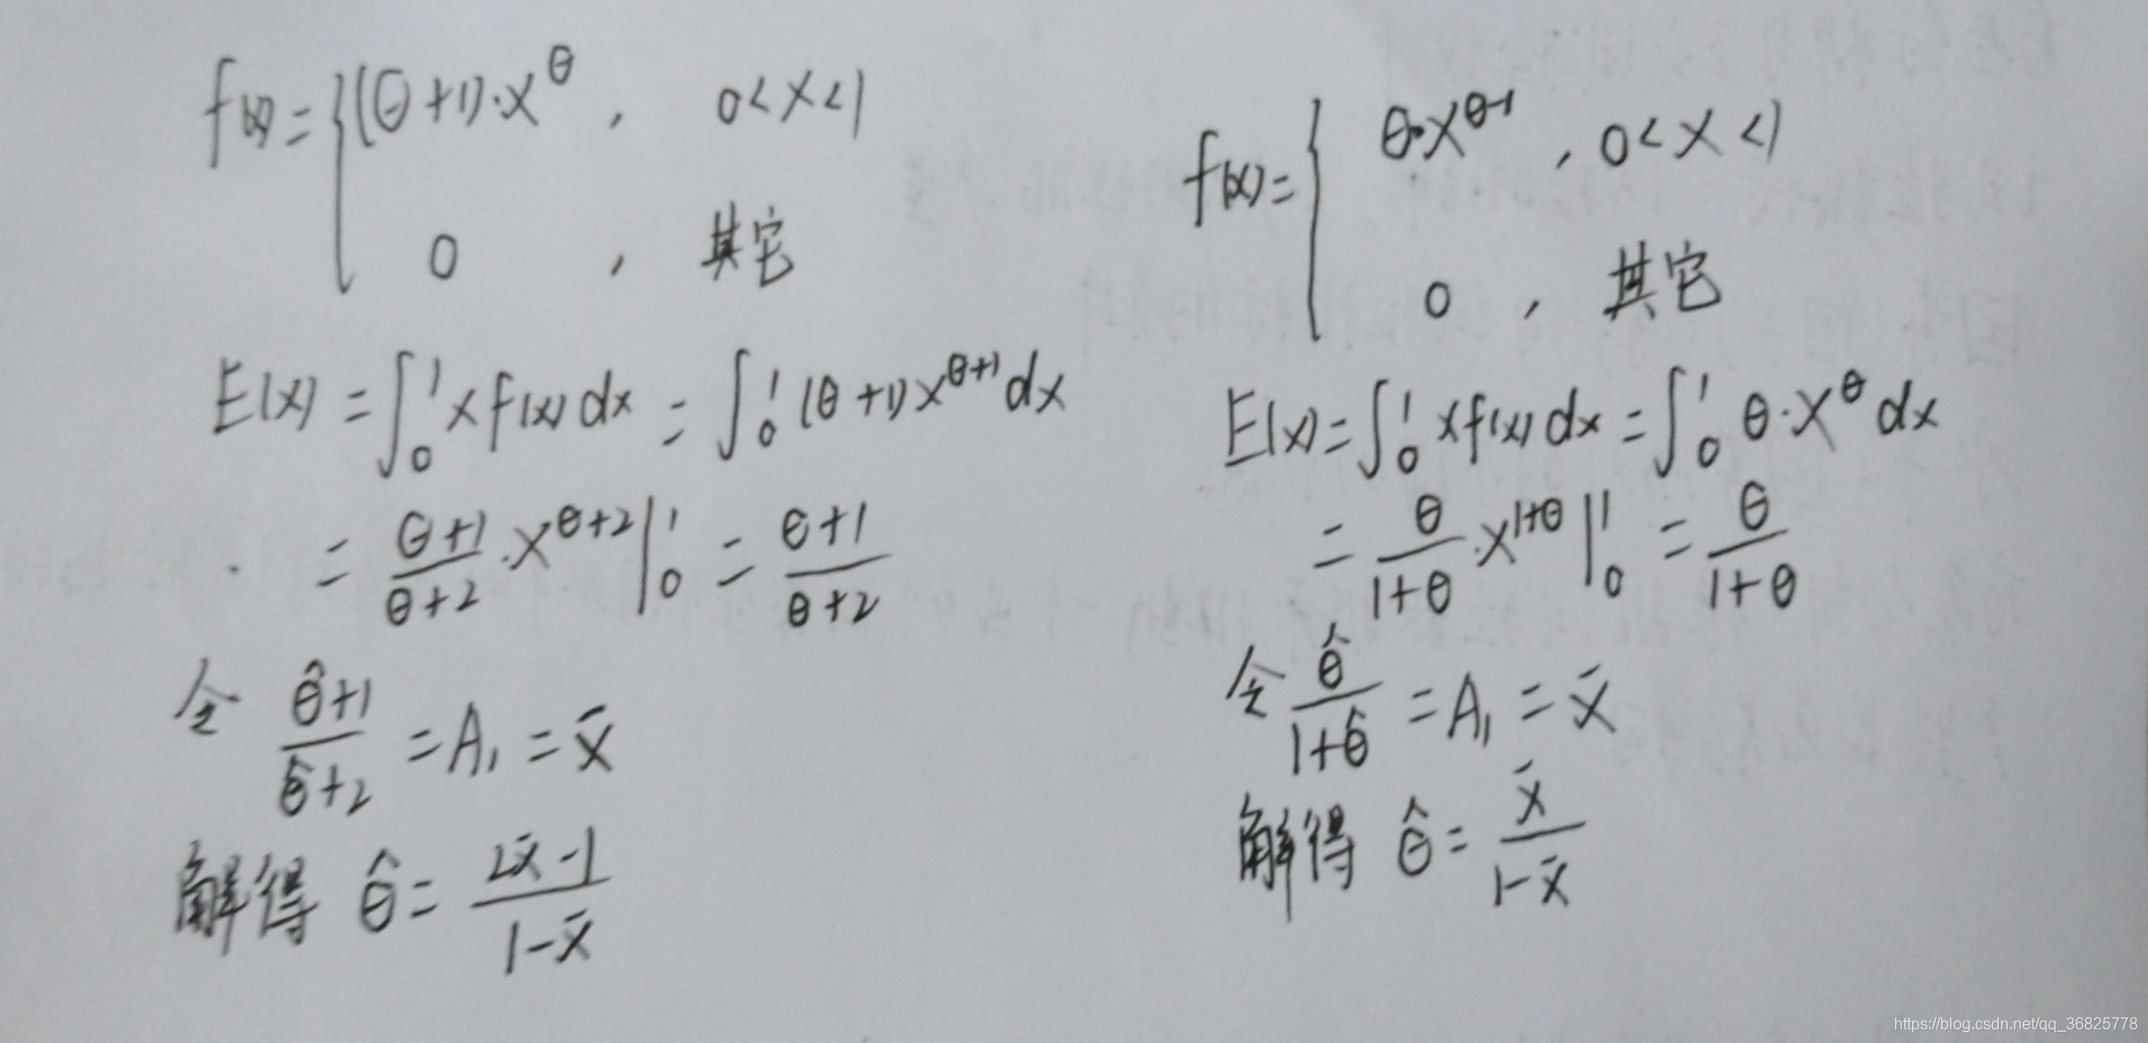 f(x)={(θ+1)·x^θ, 0<x<1
0, 其它
E(x)=∫_0^1 xf(x)dx=∫_0^1 (θ+1)x^{θ+1}dx
=\frac{θ+1}{θ+2}·x^{θ+2}|_0^1=\frac{θ+1}{θ+2}
令 \frac{\hat{θ}+1}{\hat{θ}+2}=A_1=\bar{x}
解得 \hat{θ}=\frac{2\bar{x}-1}{1-\bar{x}}
f(x)={θ·x^{θ-1}, 0<x<1
0, 其它
E(x)=∫_0^1 xf(x)dx=∫_0^1 θ·x^θ dx
=\frac{θ}{1+θ}·x^{1+θ}|_0^1=\frac{θ}{1+θ}
令 \frac{\hat{θ}}{1+\hat{θ}}=A_1=\bar{x}
解得 \hat{θ}=\frac{\bar{x}}{1-\bar{x}}
https://blog.csdn.net/qq_36825778